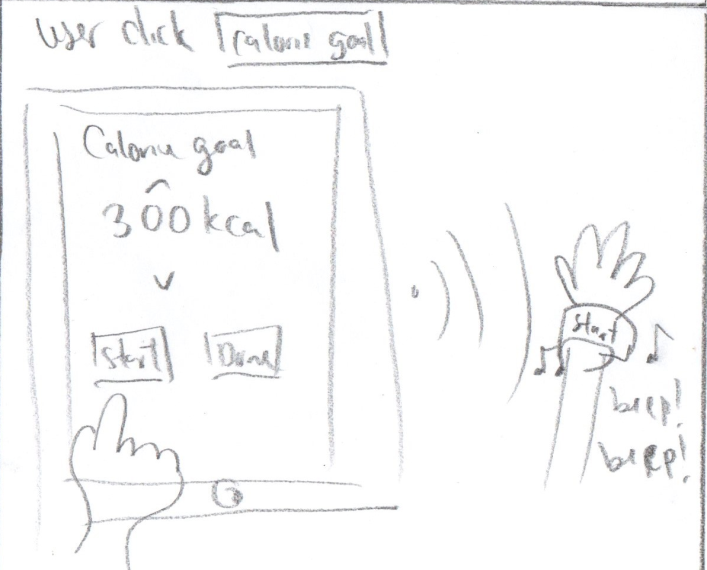 user click calorie goal
Calorie goal
300 kcal
Start Done
Start
beep!
beep!